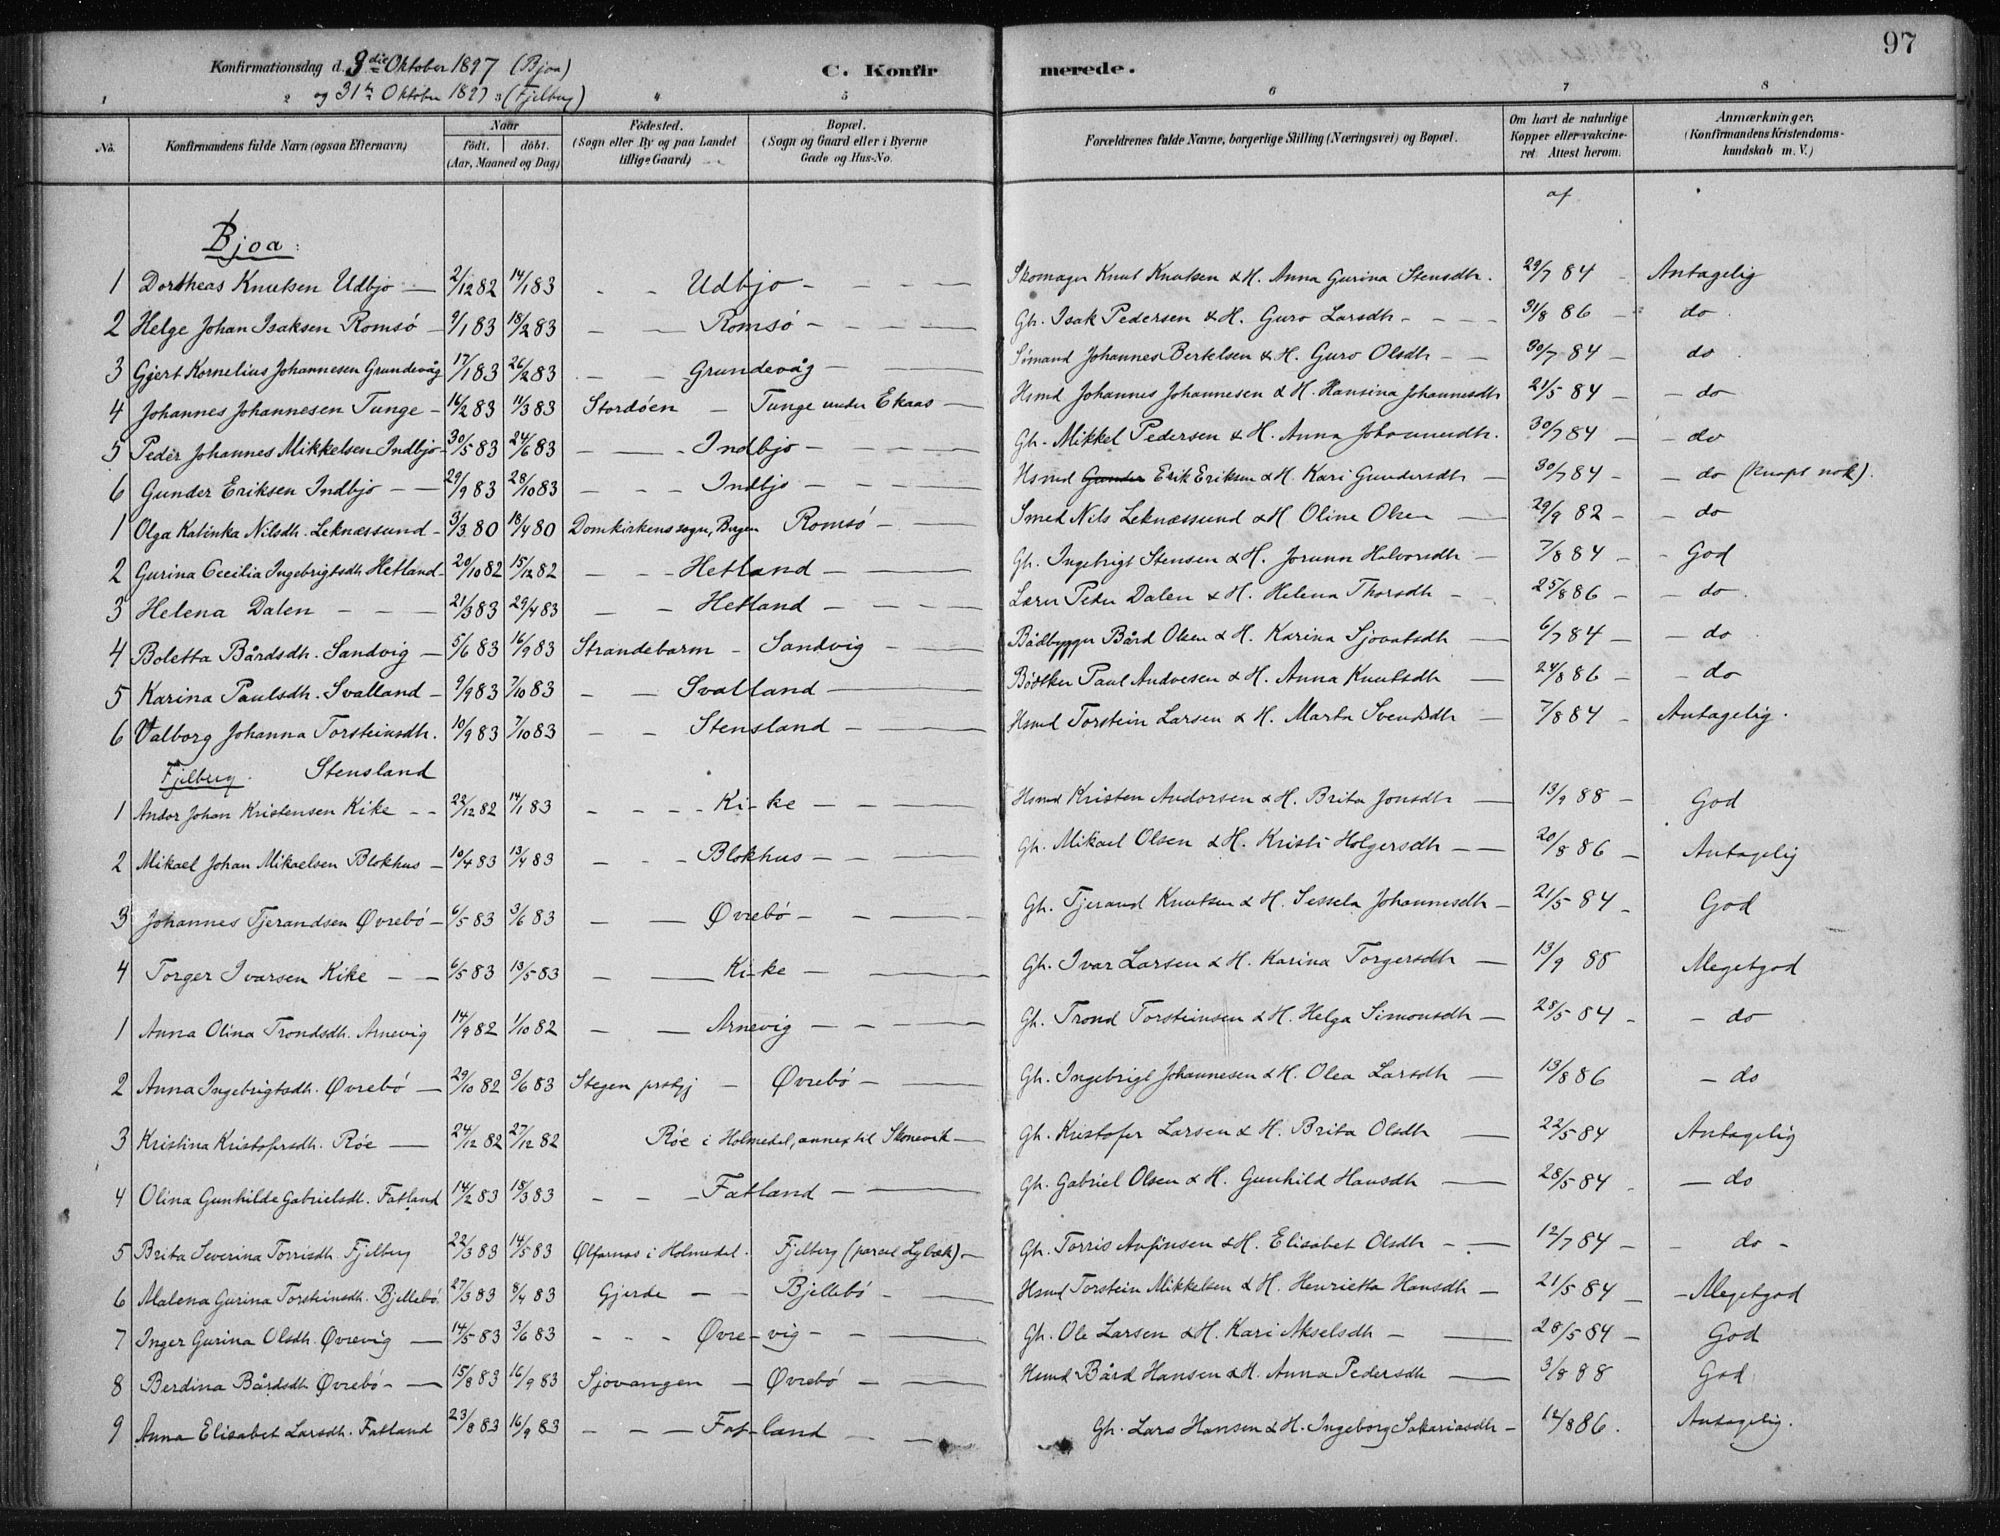 97
Konfirmationsdag d. 3die Oktober 1897 (Bjoa)
og 31te Oktober 1897 (Fjelberg)
C. Konfirmerede.
1 2 3 4 5 6 7 8
No. Konfirmandens fulde Navn (ogsaa Efternavn) Naar født. døbt. (Aar, Maaned og Dag) Fødested. (Sogn eller By og paa Landet tillige Gaard) Bopæl. (Sogn og Gaard eller i Byerne Gade og Hus-No. Forældrenes fulde Navne, borgerlige Stilling (Næringsvei) og Bopæl. Om havt de naturlige Kopper eller vakcineret. Attest herom. Anmærkninger. (Konfirmandens Kristendomskundskab m. V.)
af
Bjoa:
1 Dortheas Knutsen Udbjo — 2/12 82 14/1 83 - - Udbjo - Skomager Knut Knutsen & H. Anna Gurina Stensdh. 29/7 84 - Antagelig
2 Helge Johan Isaksen Romsö - 9/1 83 18/2 83 - - Romsö - Gh. Isak Pedersen & H. Guro Larsdh - 31/8 86 - do.
3 Gjert Kornelius Johannesen Grundevåg 17/1 83 26/2 83 - - Grundevåg - Sömand Johannes Bertelsen & H. Guro Olsdh - 30/7 84 - do.
4 Johannes Johannesen Tunge - 16/2 83 11/3 83 Stordöen - Tunge under Ekaas - Hsmd Johannes Johannesen & H. Hansina Johannesdh 21/5 84 - do
5 Peder Johannes Mikkelsen Indbjo - 30/5 83 24/6 83 - - Indbjo - Gh. Mikkel Pedersen & H. Anna Johannesdh. 30/7 84 - do
6 Gunder Eriksen Indbjo - - 29/9 83 28/10 83 - - Indbjo - Hsmd Gunder Erik Eriksen & H. Kari Gundersdh - 30/7 84 - do (knapt nok).
1 Olga Katinka Nilsdh. Leknæssund - 3/3 80 18/4 80 Domkirkens sogn, Bergen Romsö - Smed Nils Leknæssund & H. Oline Olsen - 29/9 82 - do
2 Gurina Cecilia Ingebrigtsdh Hetland - 20/10 82 15/12 82 - - Hetland - Gh. Ingebrigt Stensen & H. Jorunn Halvorsdh - 7/8 84 - God
3 Helena Dalen - - - 21/3 83 29/4 83 - - Hetland - Lærer Peder Dalen & H. Helena Thorsdh - 25/8 86 - do.
4 Boletta Bårdsdh. Sandvig - 5/6 83 16/9 83 Strandebarm - Sandvig - Bådbygger Bård Olsen & H. Karina Sjovatsdh - 6/7 84 - do.
5 Karina Paulsdh. Svalland - 9/9 83 7/10 83 - - Svalland - Bödker Paul Andresen & H. Anna Knutsdh - 24/8 86 - do
6 Valborg Johanna Torsteinsdh. 10/9 83 7/10 83 - - Stensland - Hsmd Torstein Larsen & H. Marta Svendsdh - 7/8 84 - Antagelig.
Fjelberg. Stensland
1 Andor Johan Kristensen Kike - - 22/12 82 14/1 83 - - - Kike - Hsmd Kristen Andorsen & H. Brita Jonsdh - 13/9 88 - God
2 Mikael Johan Mikaelsen Blokhus - 10/4 83 13/4 83 - - - Blokhus - Gh. Mikael Olsen & H. Kristi Holgersdh - - 20/8 86 - Antagelig
3 Johannes Tjerandsen Øvrebö - 6/5 83 3/6 83 - - Øvrebö - Gh. Tjerand Knutsen & H. Sessela Johannesdh - 21/5 84 - God
4 Torger Ivarsen Kike - - 6/5 83 13/5 83 - - Kike - Gh. Ivar Larsen & H. Karina Torgersdh - 13/9 88 Megetgod
1 Anna Olina Trondsdh. Arnevig 14/9 82 1/10 82 - - Arnevig - Gh. Trond Torsteinsen & H. Helga Simonsdh - 28/5 84 - - do
2 Anna Ingebrigtsdh. Øvrebö - 29/10 82 3/6 83 Stegen prstgj - Øvrebö - Gh. Ingebrigt Johannesen & H. Olea Larsdh - 13/8 86 - do
3 Kristina Kristofersdh. Röe - 24/12 82 27/12 82 Röe i Holmedal, annex til Skonevik - Gh. Kristofer Larsen & H. Brita Olsdh - 22/5 84 Antagelig
4 Olina Gunhilde Gabrielsdh. Fatland 14/2 83 18/3 83 - - - Fatland - Gh. Gabriel Olsen & H. Gunhild Hansdh - 28/5 84 - - do
5 Brita Severina Torrisdh. Fjelberg 22/3 83 14/5 83 Ølfarnæs i Holmedal. Fjelberg (parcel Lybæk) - Gh. Torris Anfinsen & H. Elisabet Olsdh - - 12/7 84 - - do -
6 Malena Gurina Torsteinsdh. Bjellebö 27/3 83 8/4 83 Gjerde - - Bjellebö - Hsmd Torstein Mikkelsen & H. Henrietta Hansdh - 21/5 84 - - Megetgod
7 Inger Gurina Olsdh. Øvrevig - 14/5 83 3/6 83 - - - Øvrevig - Gh. Ole Larsen & H. Kari Akselsdh - 28/5 84 - God
8 Berdina Bårdsdh Øvrebö - 15/8 83 16/9 83 Sjovangen - Øvrebö - Hsmd Bård Hansen & H. Anna Pedersdh - 3/8 88 God
9 Anna Elisabet Larsdh. Fatland 23/8 83 16/9 83 - - - Fatland - Gh. Lars Hansen & H. Ingeborg Sakariasdh - 12/8 86. Antagelig.